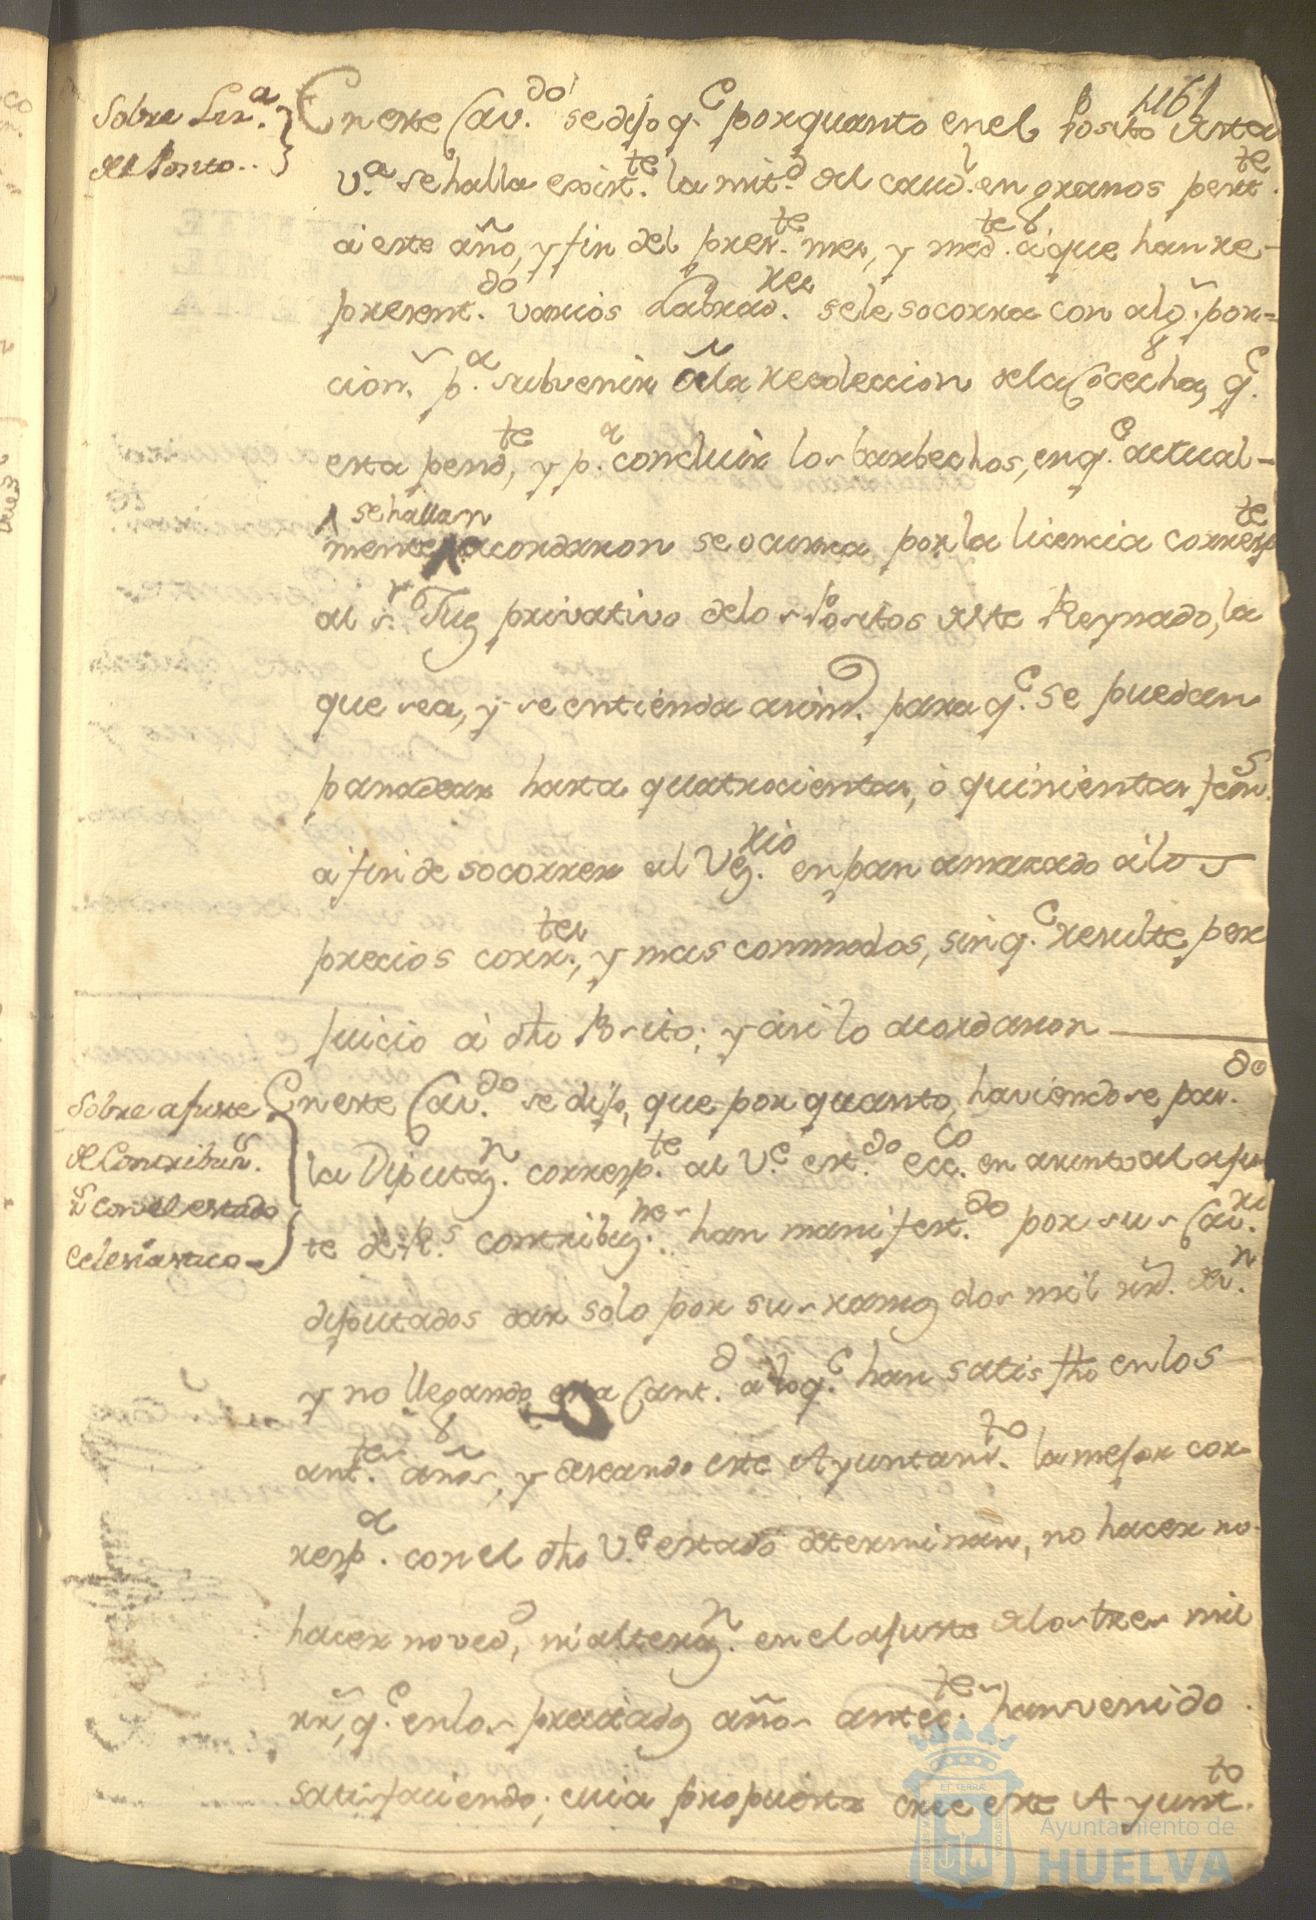 461
Sobre Liz.a
del Posito..
En este Cav.do se dijo q.e por quanto en el Posito desta
V.a se halla exist.te la mit.d del caud.l en granos pert.te
a este año, y fin del pres.te mes, y med.te a que han re-
present.do varios Labrad.res se le socorra con alg.a por-
cion p.a subvenir a la recoleccion de la Cosecha, q.e
esta pend.te, y p.a concluir los barbechos, en q.e actual-
se hallan
mente acordaron se ocurra por la licencia corresp.te
al s.r Juez privativo de los Positos deste Reynado, la
que sea, y se entienda asim.o para q.e se puedan
panadear hasta quatrocientas, o quinientas fan.s
a fin de socorrer al Vez.rio en pan amasado a los
precios corr.tes, y mas commodos, sin q.e resulte per
juicio a dho Posito; y asi lo acordaron
Sobre ajuste
de Contribuz.n
rs con el estado
eclesiastico
En este Cav.do se dijo, que por quanto, haviendose pas.do
la Diputaz.n corresp.te al V.e est.do ecc.co en asunto al ajus
te de R.s contribuz.nes han manifest.do por sus Cav.ros
diputados dar solo por su ramo dos mil rr.s de v.n
y no llegando esta Cant.d a lo q.e han satisfho en los
ant.tes años, y deseando este Ayuntam.to la mejor cor-
resp.a con el dho V.e estado determinan, no hacer no-
hacer noved.d, ni alteraz.n en el ajuste de los tres mil
rr.s, q.e en los precitados años antec.tes han venido
satisfaciendo; cuia propuesta cree este Ayunt.to
Ayuntamiento de
HUELVA